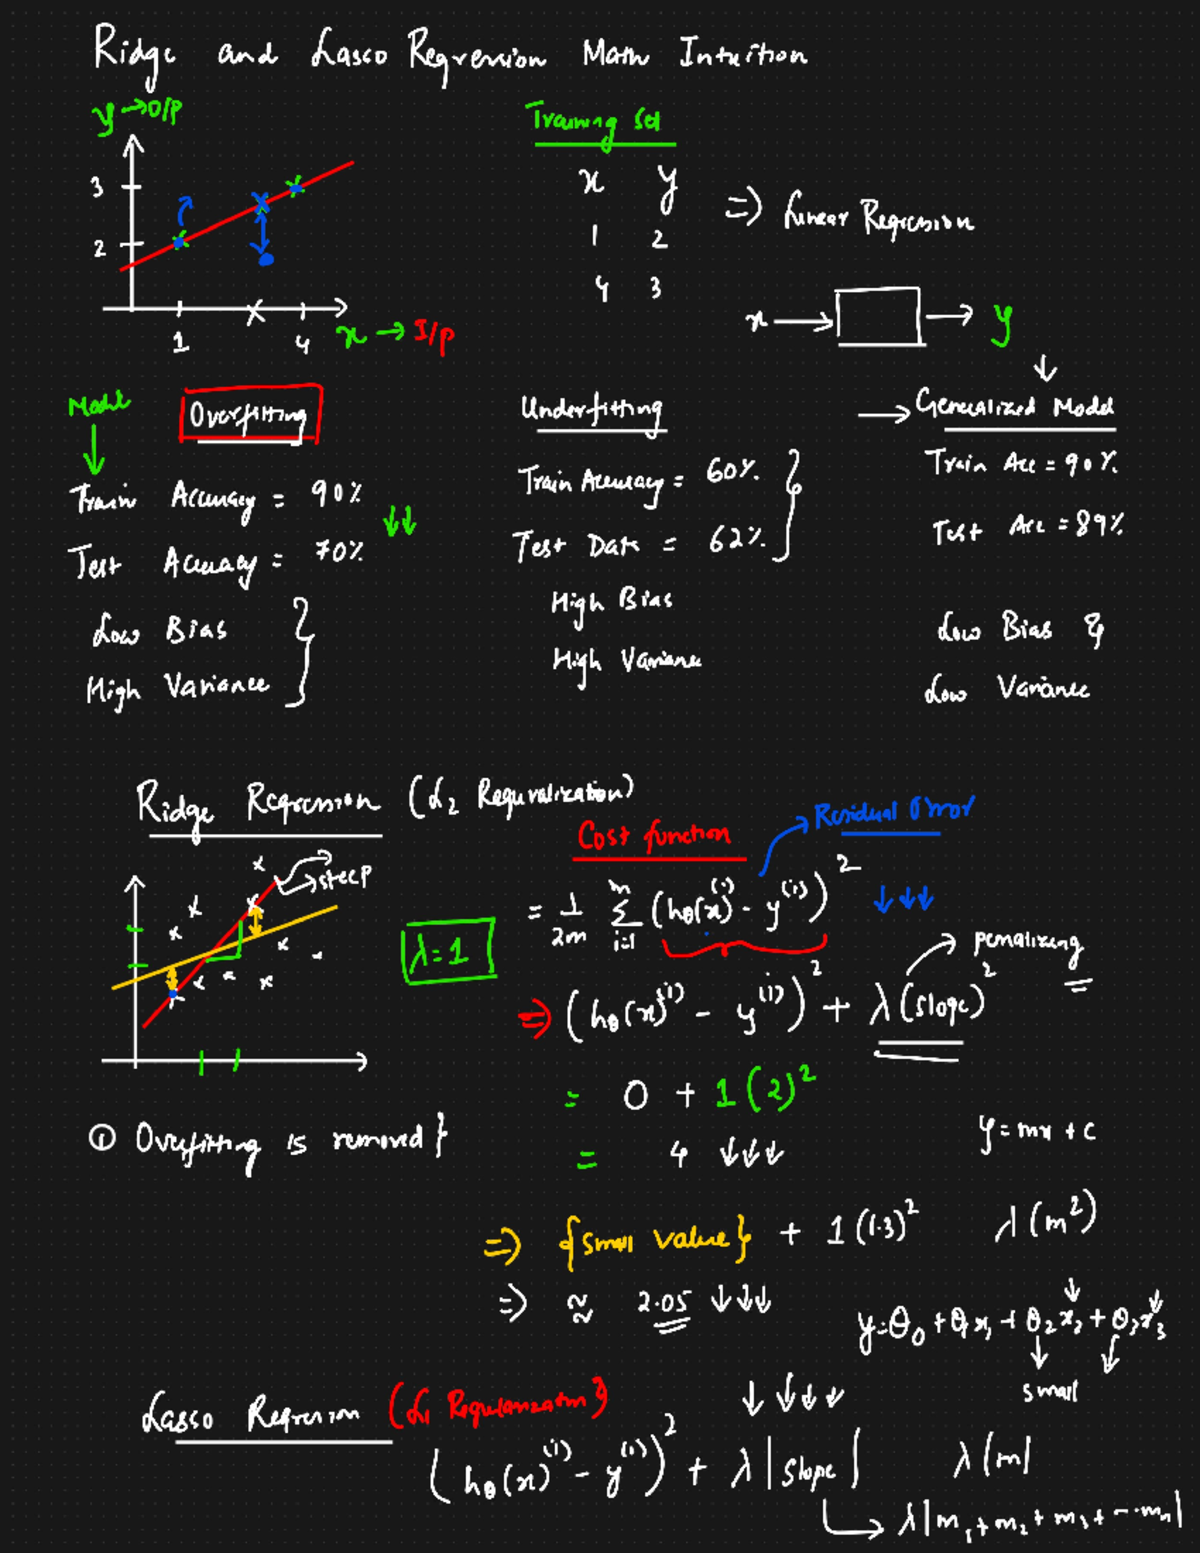 Ridge and Lasso Regression Math Intuition
y → O/P
Training Set
x y
1 2
4 3
⇒ Linear Regression
3
2
1 4
x → I/P
x → y
Model
Overfitting
Train Accuracy = 90%
↓↓
Test Accuracy = 70%
Low Bias
High Variance }
Underfitting
Train Accuracy = 60%
Test Data = 62% }
High Bias
High Variance
→ Generalized Model
Train Acc = 90%
Test Acc = 89%
Low Bias &
Low Variance
Ridge Regression (L₂ Reguralization)
→ steep
λ = 1
① Overfitting is removed }
Cost function
→ Residual Error
= 1/2m Σ_{i=1}^{m} (hθ(x)^(i) - y^(i))² ↓↓↓
→ penalizing
⇒ (hθ(x)^(i) - y^(i))² + λ(slope)²
= 0 + 1(2)²
= 4 ↓↓↓
y = mx + c
⇒ {small value} + 1(1.3)²
λ(m²)
⇒ ≈ 2.05 ↓↓↓
y = θ₀ + θ₁x₁ + θ₂x₂ + θ₃x₃
small
Lasso Regression (L₁ Regularization}
↓↓↓↓
(hθ(x)^(i) - y^(i))² + λ|slope|
λ|m|
→ λ|m₁ + m₂ + m₃ + --- mₙ|